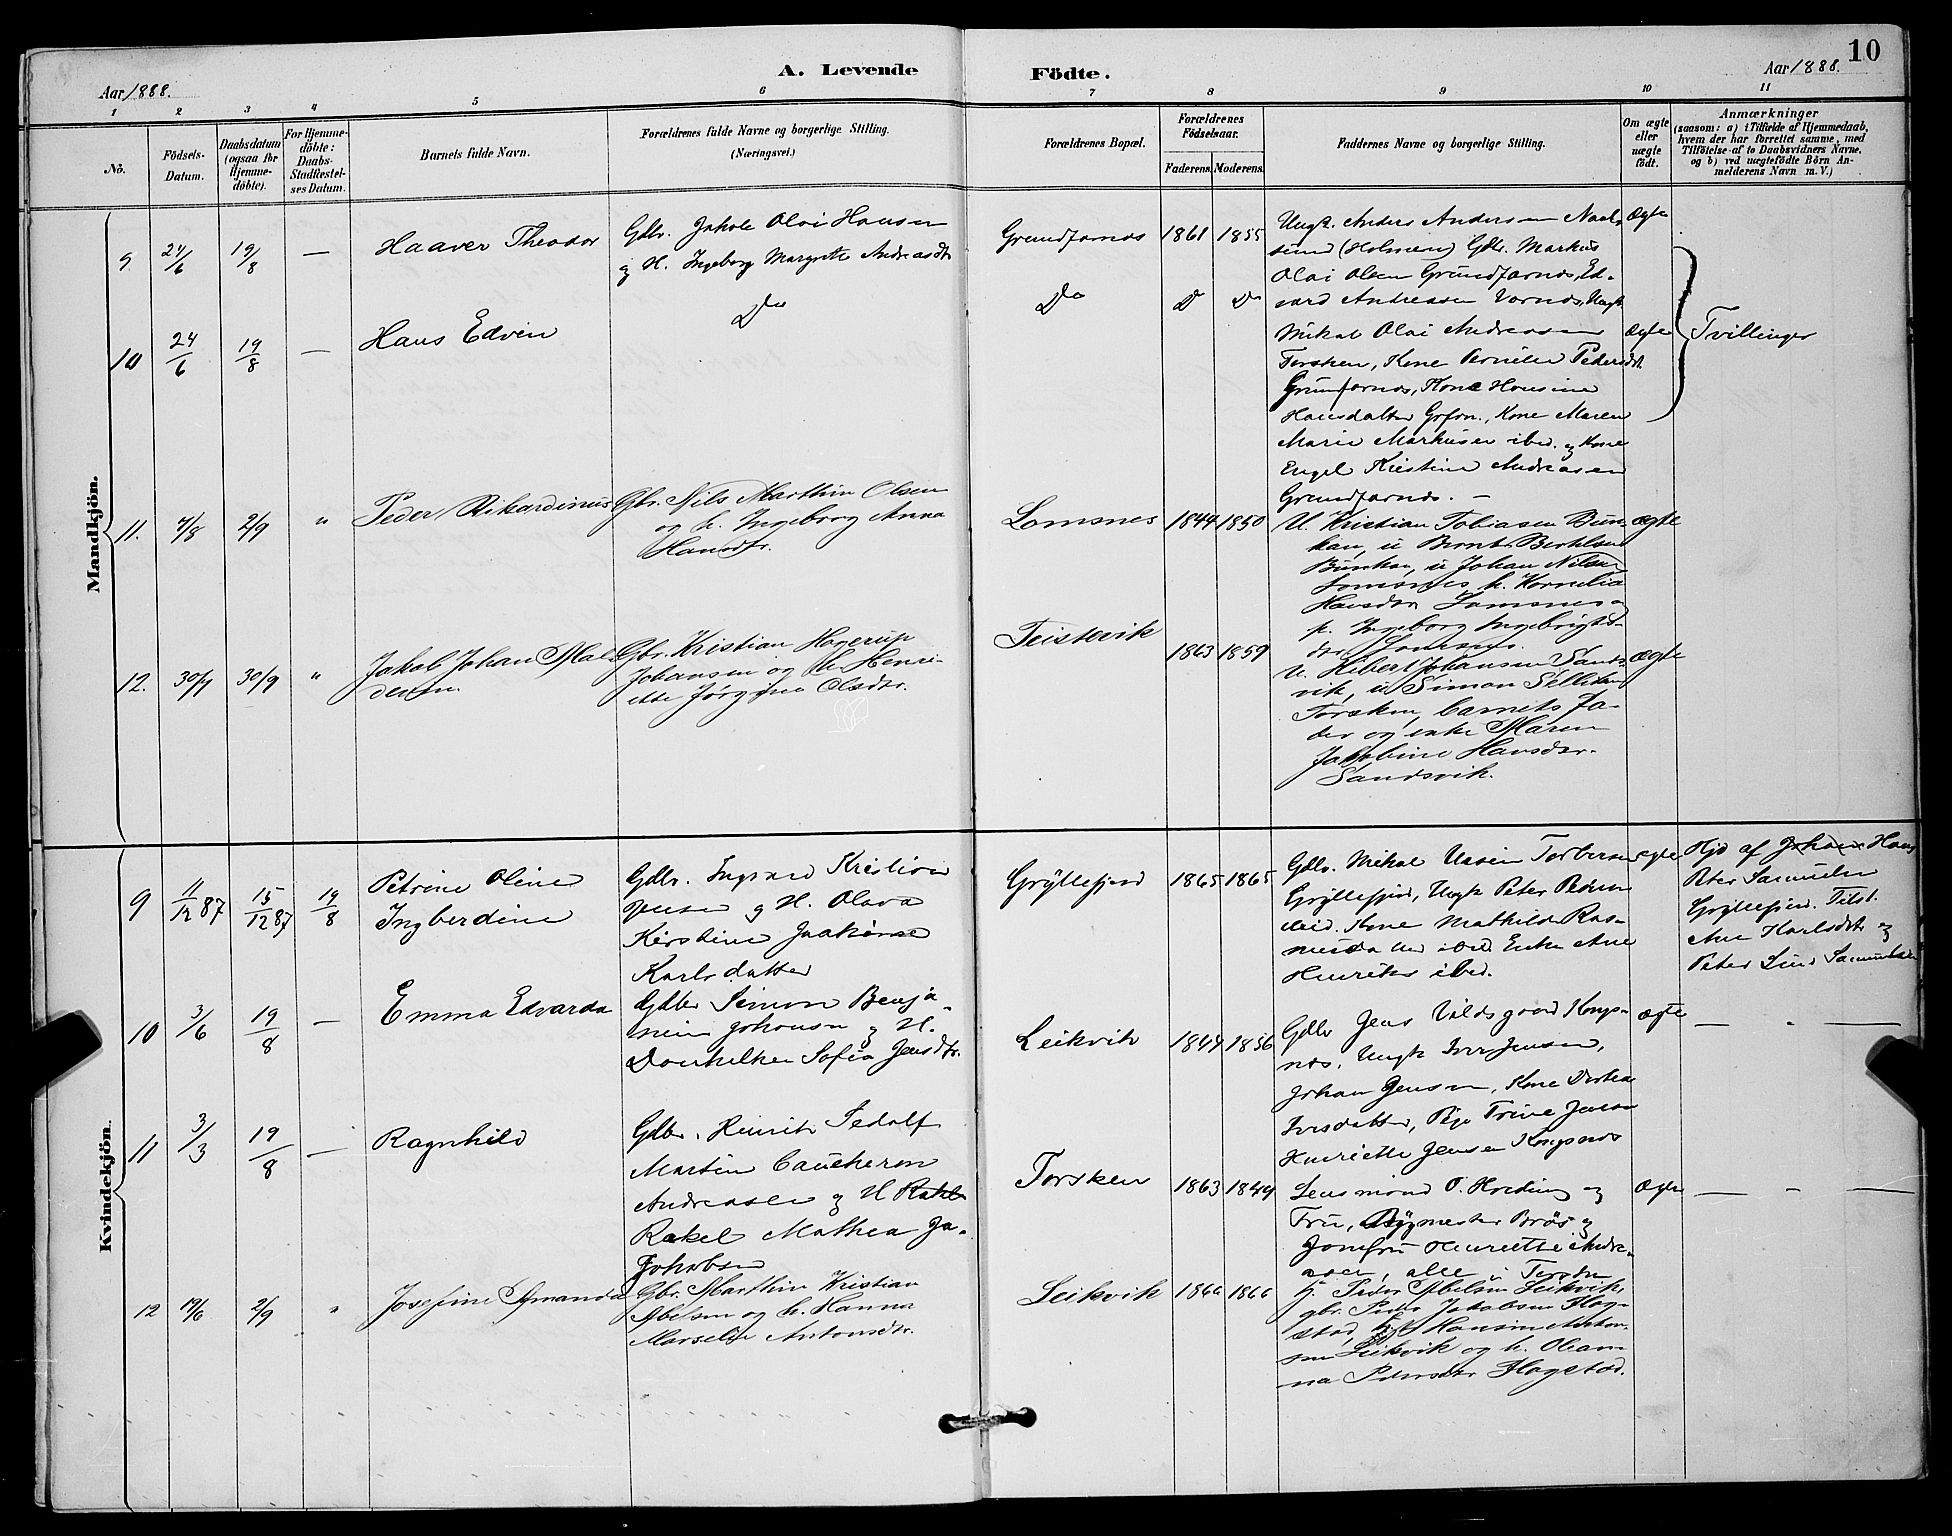 10
A. Levende Födte.
Aar 1888.
Aar 1888.
1 2 3 4 5 6 7 8 9 10 11
No.
Födsels-
Datum.
Daabsdatum
(ogsaa for
Hjemme-
döbte).
For Hjemme-
döbte:
Daabs-
Stadfæstel-
ses Datum.
Barnets fulde Navn.
Forældrenes fulde Navne og borgerlige Stilling.
(Næringsvei.)
Forældrenes Bopæl.
Forældrenes
Födselsaar.
Faderens. Moderens.
Faddernes Navne og borgerlige Stilling.
Om ægte
eller
uægte
födt.
Anmærkninger
(saasom: a) i Tilfælde af Hjemmedaab,
hvem der har forrettet samme, med
Tilföielse af to Daabsvidners Navne,
og b) ved uægtefödte Börn An-
melderens Navn m. V.)
Mandkjön.
9 24/6 19/8 —
Haaver Theodor
Gdbr. Jakob Olai Hansen
og H. Ingeborg Margrethe Andreasdtr
Grundfarnes 1861 1855
Ungk. Anders Andersen
(Holmen) Gdbr. Markus
Olai Olsen Grundfarnes, Ed-
vard Andreassen Vornes, Ungk
Ægte
10 24/6 19/8 —
Hans Edvin
Do
Do D Do
Mikal Olai Andreasen
Torsken, Kone Pernille Pedersdt.
Grunfarnes, Kone Hansine
Hansdatter Grfrn., Kone Maren
Marie Markusen ibid. og Kone
Engel Kristine Andreasen
Grundfarnes. —
Ægte
Tvillinger
11. 4/8 2/9 "
Peder Rikardinus
Gbr. Nils Marthin Olsen
og h. Ingeborg Anna
Hansdtr.
Lomsnes 1844 1850
U. Kristian Tobiasen Bun-
kan, u Bernt Berthelsen
Bunkan, u Johan Nilsen
Lomsnes, h. Kornelia
Hansdtr Lomsnes og
p. Ingeborg Ingebrigts-
dtr Lomsnes.
ægte
12. 30/9 "
Jakob Johan
Gbr. Kristian Hagerup
Johansen og h. Henri-
ette Jørgine Olsdtr.
Teistevik 1863 1859
U. Johansen Sands-
vik, u Simon
Torsken, barnets fa-
der og enke Maren
Jakobine Hansdtr.
Sandsvik.
ægte
Kvindekjön.
9 11/12 87 15/12 87 19/8
Petrine Oline
Ingberdine
Gdbr. Ingvard Kristian
og H. Olava
Kirstine
Karlsdatter
Gryllefjord 1865 1865
Gdbr. Mikal Torbersen
Gryllefjord, Ungk Peter Pedersen
ibid. Kone Mathilde Ras-
musdatter ibid Enke Ane
Henriks ibid.
ægte
Hjd af Johan Hans
Peter Samuelsen
Gryllefjord. Tilst.
Ane Karlsdtr og
Peter Samuelsen
10 3/6 19/8 —
Emma Edvarda
Gdbr Simon Benja-
min Johansen og H.
Sofia Jensdtr.
Leikvik 1849 1856
Gdbr Jens Kongs-
nes, Ungk Iver Jensen,
Johan Jensen, Kone
Iversdatter, Pige Trine Jensen
Henriette Jensen Kongsnes
ægte
— " —
11 3/3 19/8 —
Ragnhild
Gdbr. Henrik
Martin
Andreasen og H
Rakel Mathea Ja-
Jakobsen
Torsken 1863 1849
Lensmand O. og
Frue, og
Jomfru Henriette Andre-
asen, alle i Torsken
Ægte
— " —
12 2/9 "
Josefine Amanda
Gbr. Marthin Kristian
Abelsen og h. Hanna
Antonsdtr.
Leikvik 1866 1866
Peder Abelsen Leikvik,
gbr. Peder Jakobsen Flag-
stad, Hansine Anton-
sen Leikvik og h.
Pedersdtr Flagstad.